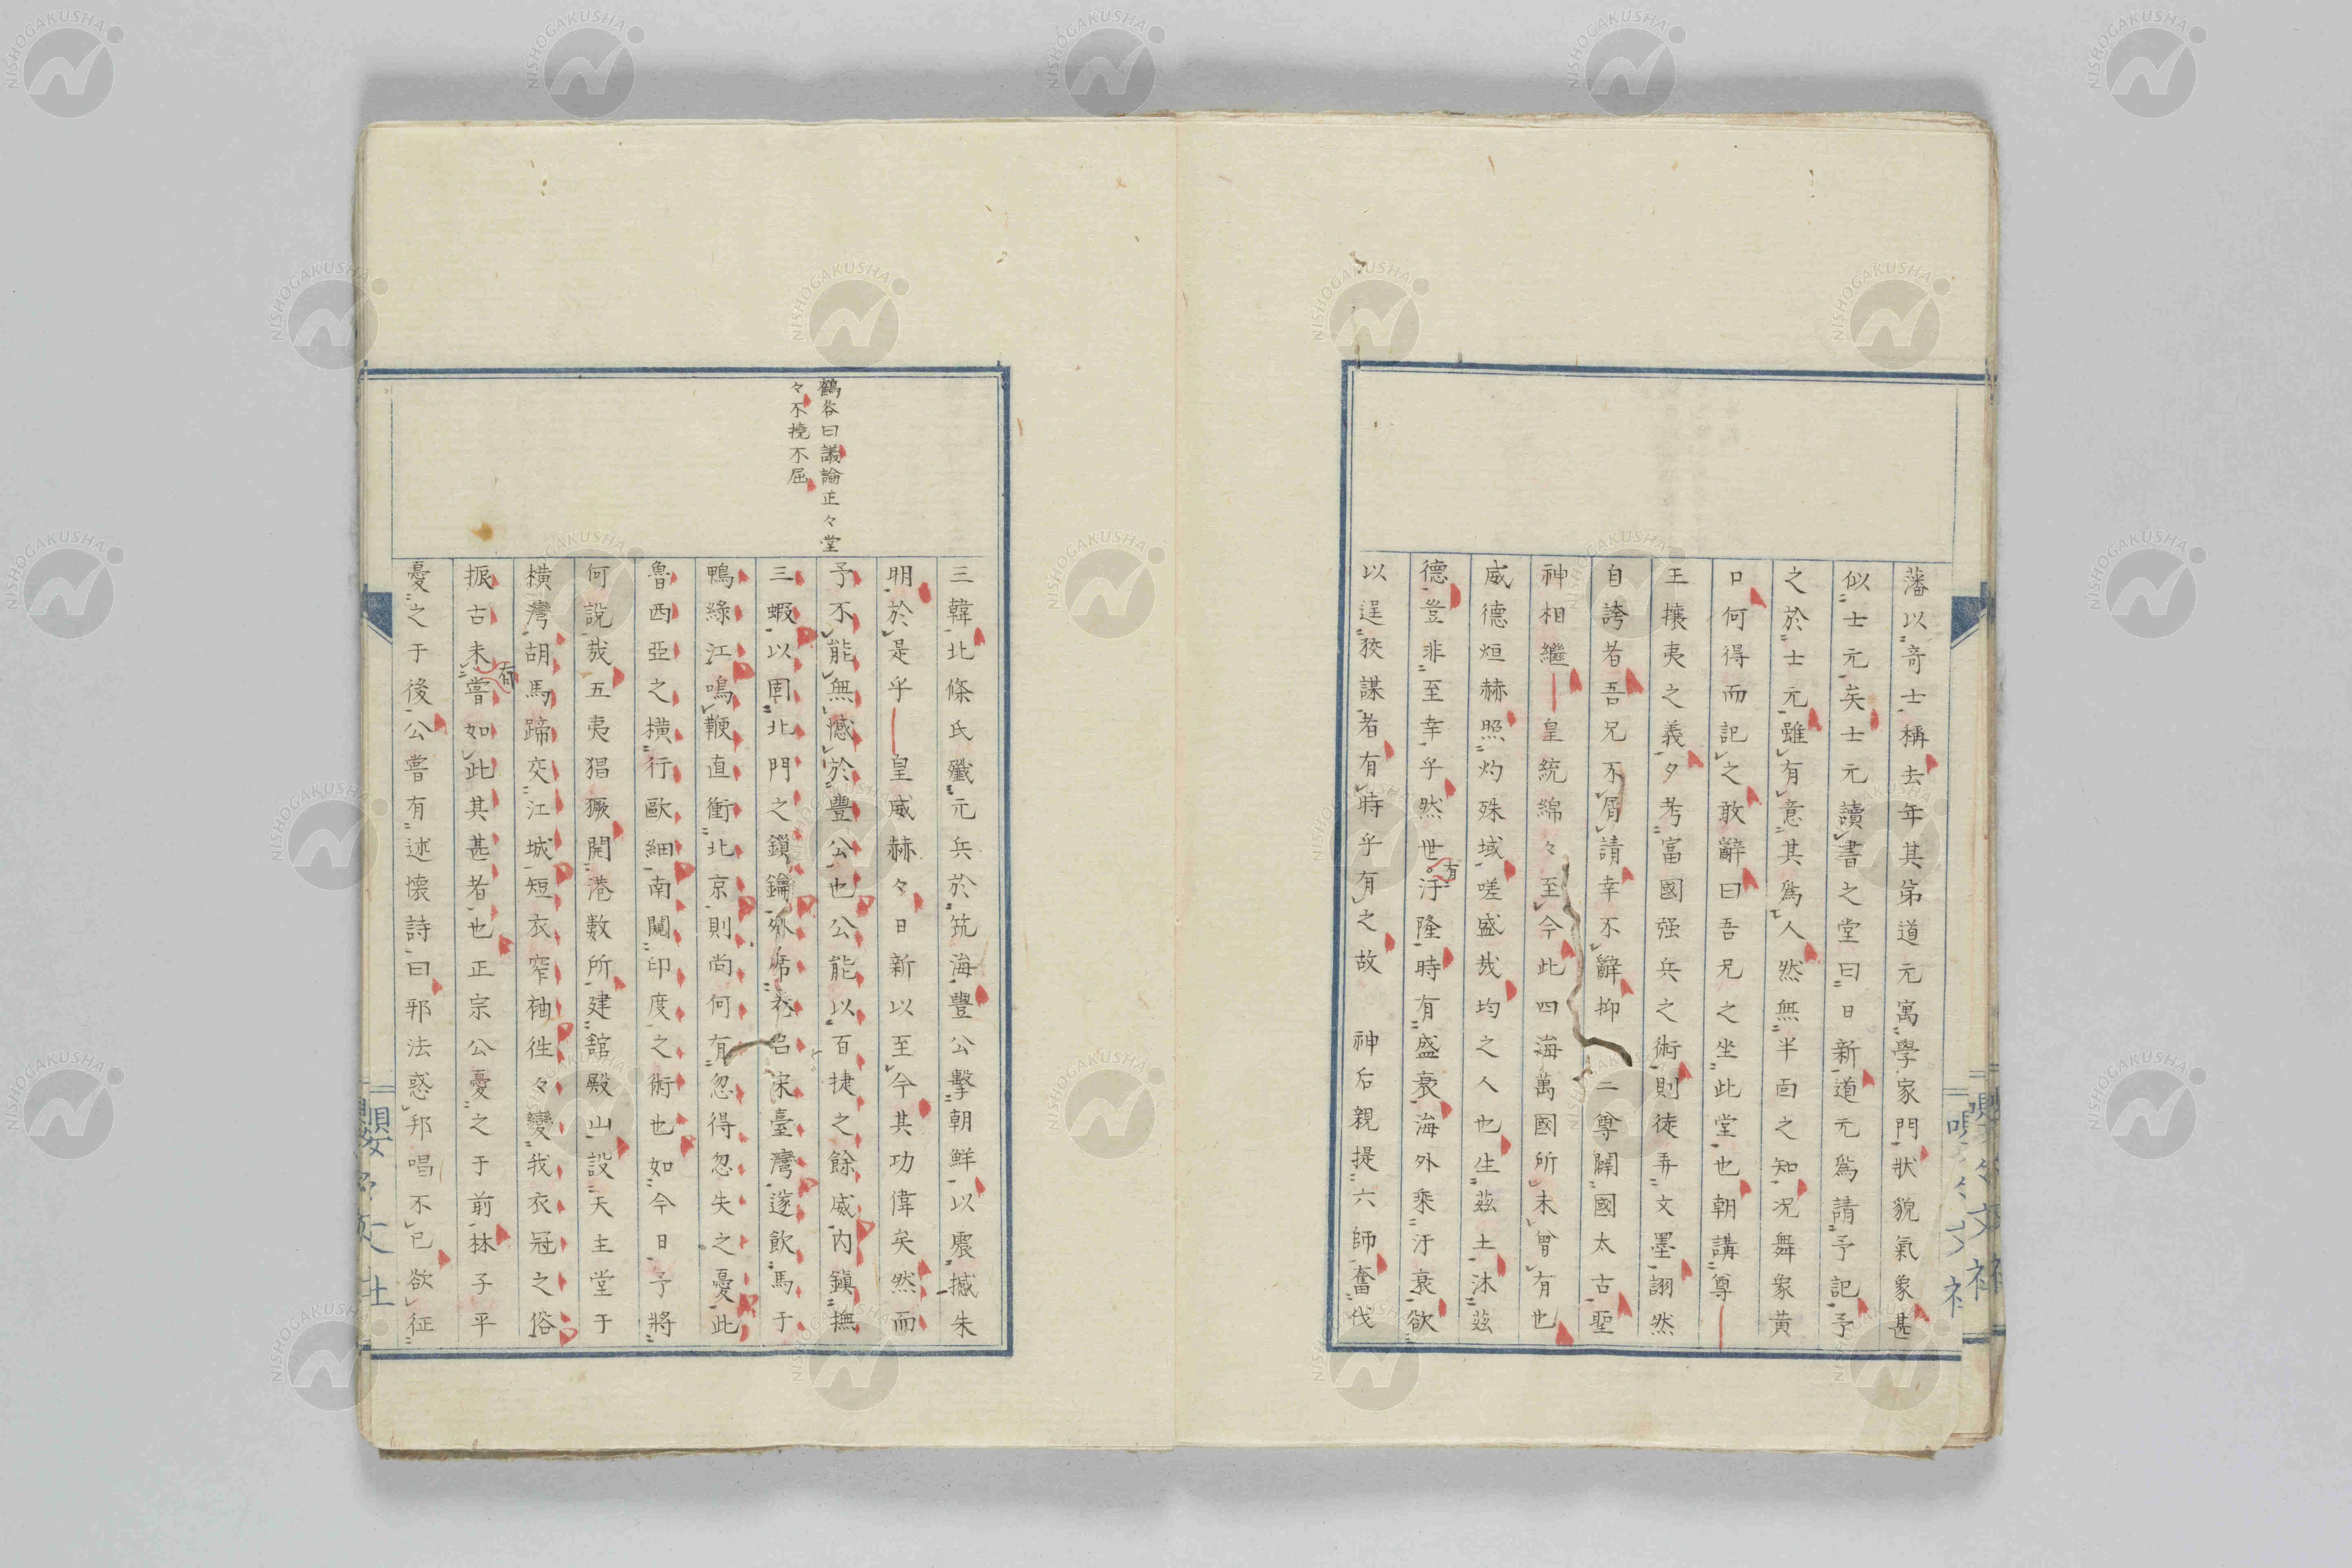 藩以奇士稱去年其弟道元寓學家門狀貌氣象甚
似士元矣士元讀書之堂曰日新道元爲請予記予
之於士元雖有意其爲人然無半面之知況舞象黄
口何得而記之敢辭曰吾兄之坐此堂也朝講尊
王攘夷之義夕考富國强兵之術則徒弄文墨詡然
自誇者吾兄不屑請幸不辭抑二尊闢國太古聖
神相繼皇統綿々至今此四海萬國所未曾有也
威德烜赫照灼殊域嗟盛哉均之人也生茲土沐茲
德豈非至幸乎然世有汙隆時有盛衰海外乘汙衰欲
以逞狡謀者有時乎有之故 神后親提六師奮伐
三韓北條氏殲元兵於筑海豐公擊朝鮮以震撼朱
明於是乎皇威赫々日新以至今其功偉矣然而
予不能無憾於豐公也公能以百捷之餘威內鎮撫
三蝦以固北門之鎖鑰外席卷呂宋臺灣遂飲馬于
鴨綠江鳴鞭直衝北京則尚何有忽得忽失之憂此
魯西亞之橫行歐細南闖印度之術也如今日予將
何說哉五夷猖獗開港數所建館殿山設天主堂于
橫灣胡馬蹄交江城短衣窄袖徃々變我衣冠之俗
振古未嘗有如此其甚者也正宗公憂之于前林子平
憂之于後公嘗有述懷詩曰邪法惑邦唱不已欲征
鶴谷曰議論正々堂
々不撓不屈